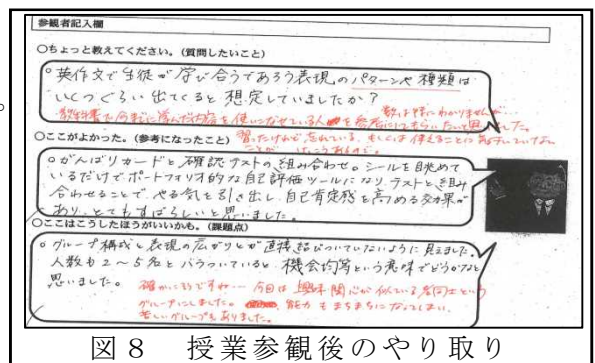 参観者記入欄
○ちょっと教えてください。(質問したいこと)
○英作文で生徒が学び合うであろう表現のパターンや種類は
いくつぐらい出てくると想定していましたか？
教科書で今までに学んだ内容を使いこなせている人を参考にしてもらいたいと思いました。
数は特にわかりませんが…
習ったけれど、忘れている、もしくは使えることに気付いていない
○ここがよかった。(参考になったこと)
○がんばりカードと確認テストの組み合わせ。シールを眺めて
いるだけでポートフォリオ的な自己評価ツールになり、テストと組み
合わせることで、やる気を引き出し、自己肯定感を高める効果が
あり、とてもすばらしいと思いました。
○ここはこうしたほうがいいかも。(課題点)
○グループ構成と表現の広がりとが直接結びついていないように見えました。
人数も2～5名とバラついていると、機会均等という意味でどうかなと
思いました。
確かにそうですね…今回は興味関心が似ている者同士という
グループにしました。能力もまちまちになってしまい、
苦しいグループもありました。
図8 授業参観後のやり取り